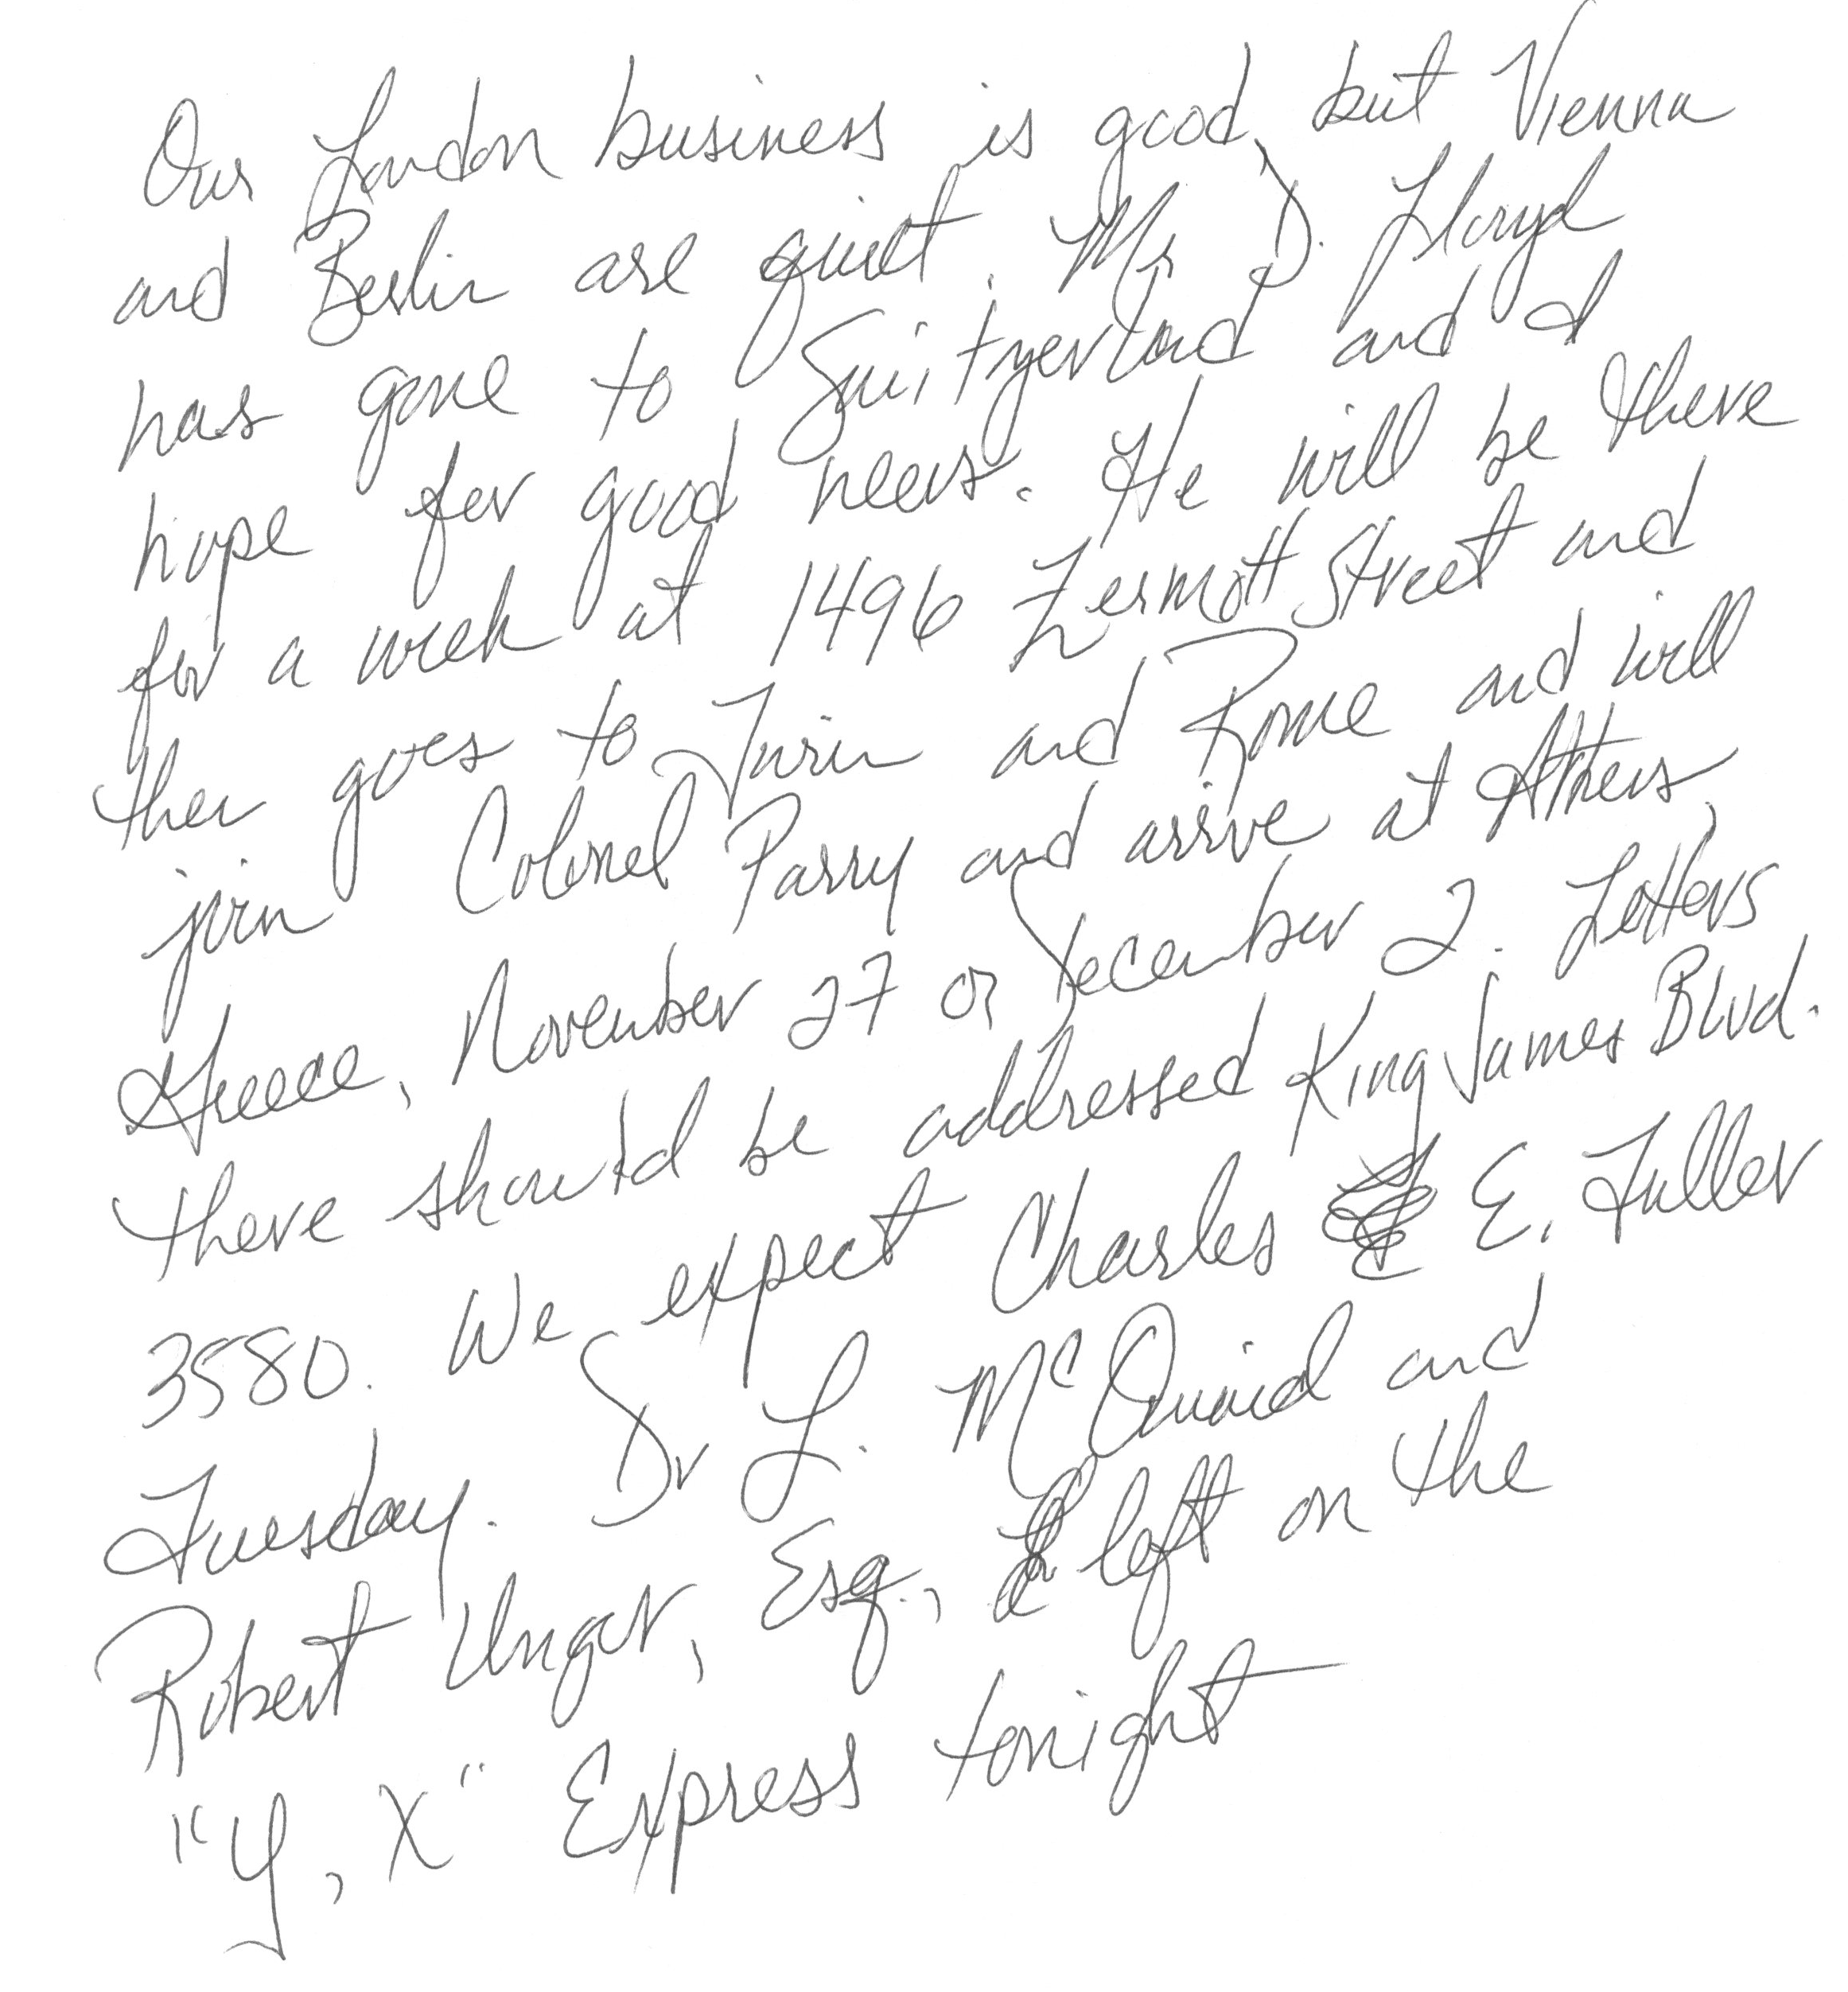 Our London business is good, but Vienna
and Berlin are quiet. Mr. D. Lloyd
has gone to Switzerland and I
hope for good news. He will be there
for a week at 1496 Zermott Street and
then goes to Turin and Rome and will
join Colonel Parry and arrive at Athens,
Greece, November 27 or December 2. Letters
there should be addressed King James Blvd.
3580. We expect Charles E. Fuller
Tuesday. Dr L. McQuaid and
Robert Unger, Esq., left on the
"Y, X" Express tonight